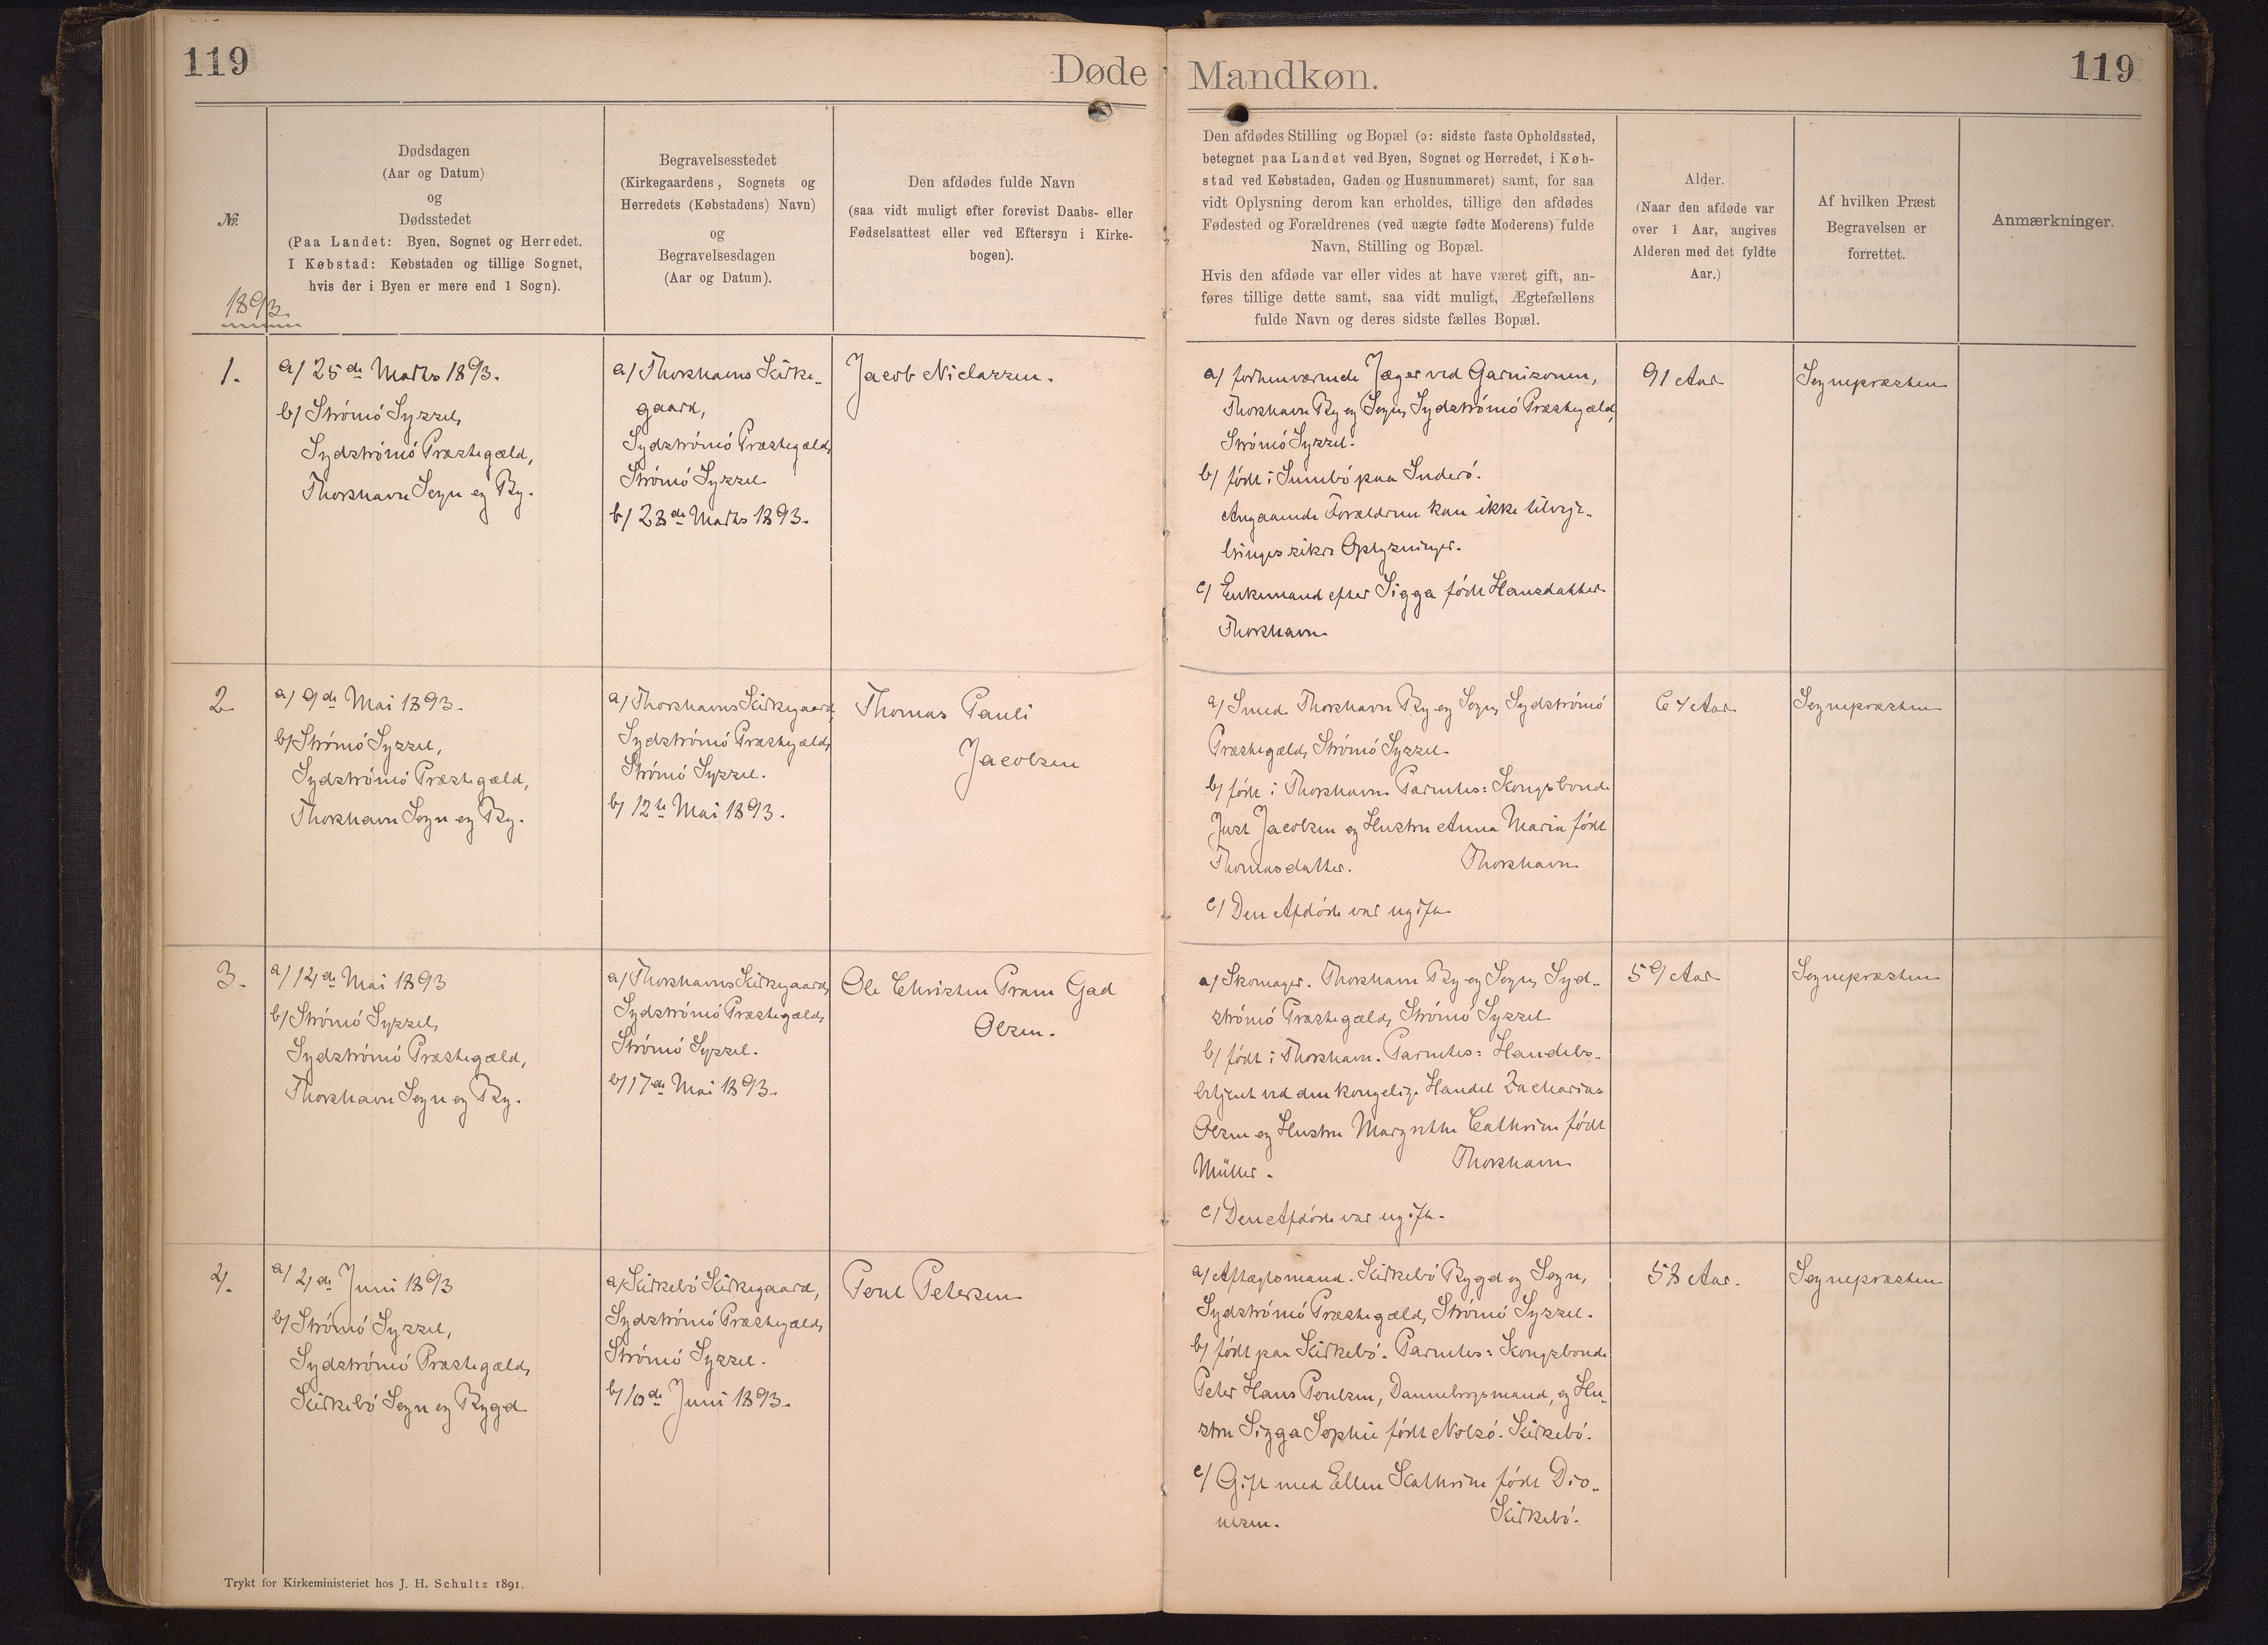 119
Døde
Mandkøn.
119
№.
1893.
Dødsdagen
(Aar og Datum)
og
Dødsstedet
(Paa Landet: Byen, Sognet og Herredet.
I Købstad: Købstaden og tillige Sognet,
hvis der i Byen er mere end 1 Sogn).
Begravelsesstedet
(Kirkegaardens, Sognets og
Herredets (Købstadens) Navn)
og
Begravelsesdagen
(Aar og Datum).
Den afdødes fulde Navn
(saa vidt muligt efter forevist Daabs- eller
Fødselsattest eller ved Eftersyn i Kirke-
bogen).
Den afdødes Stilling og Bopæl (ɔ: sidste faste Opholdssted,
betegnet paa Landet ved Byen, Sognet og Herredet, i Køb-
stad ved Købstaden, Gaden og Husnummeret) samt, for saa
vidt Oplysning derom kan erholdes, tillige den afdødes
Fødested og Forældrenes (ved uægte fødte Moderens) fulde
Navn, Stilling og Bopæl.
Hvis den afdøde var eller vides at have været gift, an-
føres tillige dette samt, saa vidt muligt, Ægtefællens
fulde Navn og deres sidste fælles Bopæl.
Alder.
(Naar den afdøde var
over 1 Aar, angives
Alderen med det fyldte
Aar.)
Af hvilken Præst
Begravelsen er
forrettet.
Anmærkninger.
1.
a/ 25de Marts 1893.
b/ Strömö Syssel,
Sydströmö Præstegæld,
Thorshavn Sogn og By.
a/ Thorshavns Kirke-
gaard,
Sydströmö Præstegæld,
Strömö Syssel
b/ 28de Marts 1893.
Jacob Niclassen.
a/ forhenværende Jæger ved Garnisonen,
Thorshavn By og Sogn, Sydströmö Præstegæld,
Strömö Syssel.
b/ födt i Sumbö paa Suderö.
Angaaende Forældrene kan ikke tilveje-
bringes sikre Oplysninger.
c/ Enkemand efter Sigga födt Hansdatter
Thorshavn
91 Aar
Sognepræsten
2
a/ 9de Mai 1893.
b/ Strömö Syssel,
Sydströmö Præstegæld,
Thorshavn Sogn og By.
a/ Thorshavns Kirkegaard,
Sydströmö Præstegæld,
Strömö Syssel.
b/ 12te Mai 1893.
Thomas Pauli
Jacobsen
a/ Smed. Thorshavn By og Sogn, Sydströmö
Præstegæld, Strömö Syssel
b/ födt i Thorshavn. Parentes: Kongsbonde
Just Jacobsen og Hustru Anna Maria födt
Thomasdatter. Thorshavn
c/ Den Afdöde var ugift
64 Aar
Sognepræsten
3.
a/ 14de Mai 1893
b/ Strömö Syssel,
Sydströmö Præstegæld,
Thorshavn Sogn og By.
a/ Thorshavns Kirkegaard,
Sydströmö Præstegæld,
Strömö Syssel.
b/ 17de Mai 1893.
Ole Christen Pram Gad
Olsen.
a/ Skomager. Thorshavn By og Sogn, Syd-
strömö Præstegæld, Strömö Syssel
b/ födt i Thorshavn. Parentes: Handels-
betjent ved den kongelige Handel Zacharias
Olsen og Hustru Margrethe Cathrine födt
Müller. Thorshavn
c/ Den Afdöde var ugift.
59 Aar
Sognepræsten
4.
a/ 4de Juni 1893
b/ Strömö Syssel,
Sydströmö Præstegæld,
Kirkebö Sogn og Bygd
a/ Kirkebö Kirkegaard,
Sydströmö Præstegæld,
Strömö Syssel.
b/ 10de Juni 1893.
Poul Petersen
a/ Aftægtsmand. Kirkebö Bygd og Sogn,
Sydströmö Præstegæld, Strömö Syssel.
b/ födt paa Kirkebö. Parentes: Kongsbonde
Peter Hans Poulsen, Dannebrogsmand, og Hu-
stru Sigga Sophie födt Nolsö. Kirkebö.
c/ Gift med Ellen Kathrine födt Dio-
nesen. Kirkebö.
58 Aar.
Sognepræsten
Trykt for Kirkeministeriet hos J. H. Schultz 1891.